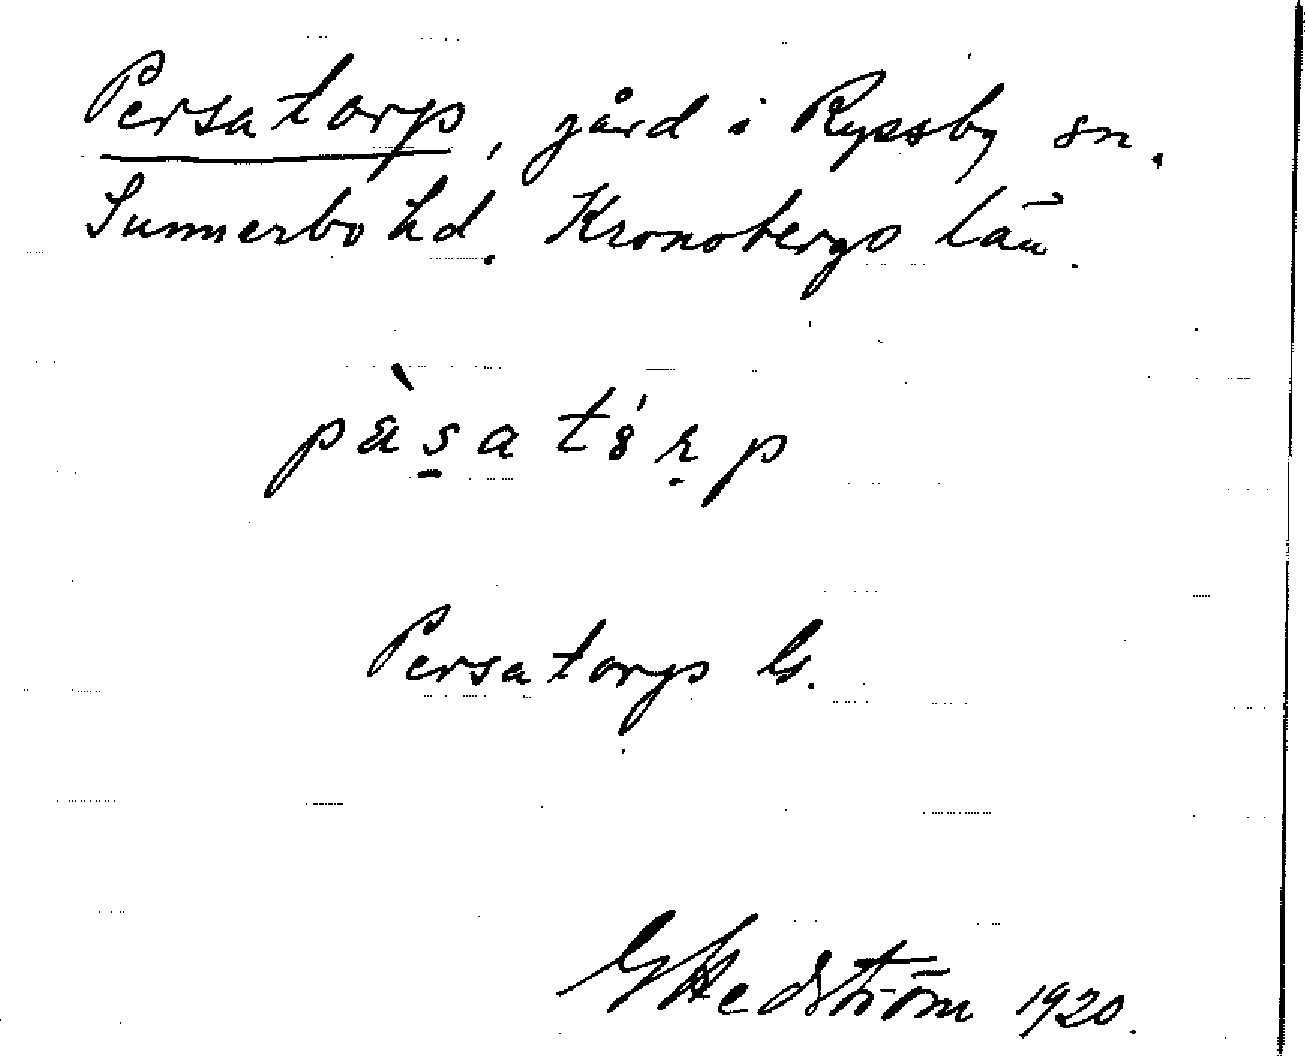 Persatorp, gård i Ryssby sn.
Sunnerbo hd. Kronobergs län.
pæ̀s̠atȯ́ṛp
Persatorp
GHedström 1920.